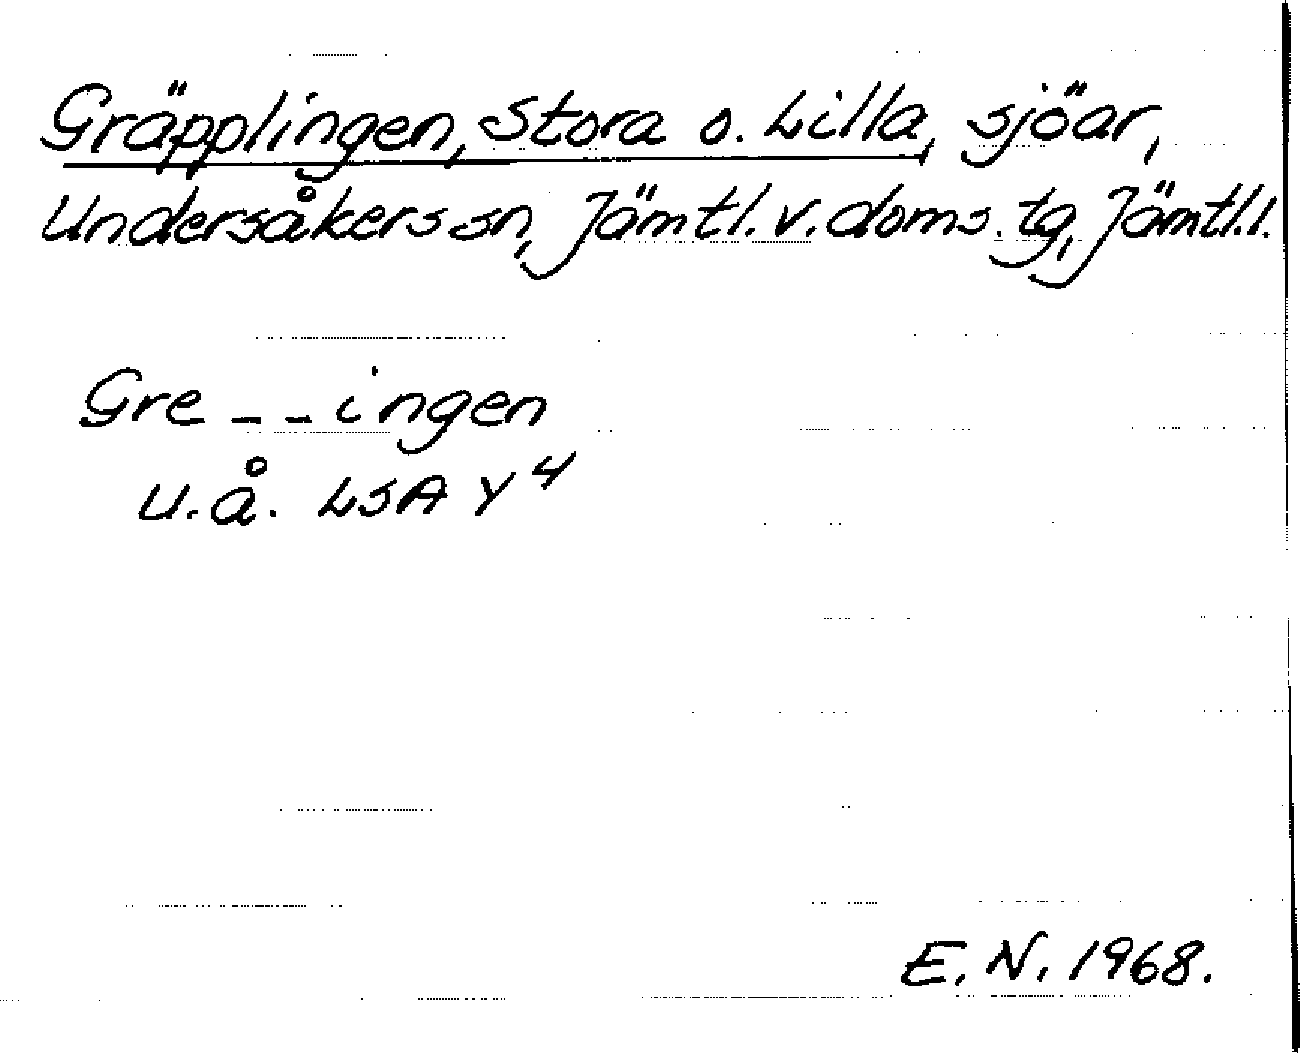 Gräpplingen, Stora o. Lilla, sjöar,
Undersåkers sn, Jämtl. v. doms. tg, Jämtl.l.
Gre _ _ ingen
u.å. LSA Y4
E. N. 1968.